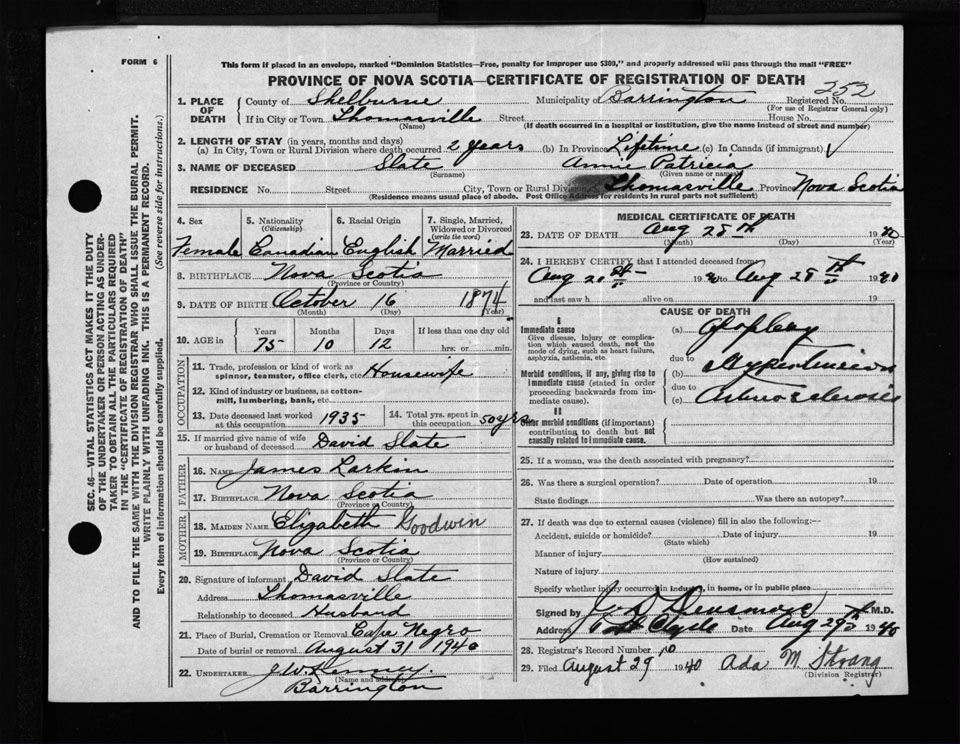 FORM 6
This form if placed in an envelope, marked "Dominion Statistics—Free, penalty for improper use $300", and properly addressed will pass through the mail "FREE"
PROVINCE OF NOVA SCOTIA—CERTIFICATE OF REGISTRATION OF DEATH
252
1. PLACE OF DEATH County of Shelburne Municipality of Barrington Registered No.
(For use of Registrar General only)
If in City or Town Thomasville Street House No.
(Name) (If death occurred in a hospital or institution, give the name instead of street and number)
2. LENGTH OF STAY (in years, months and days)
(a) In City, Town or Rural Division where death occurred 2 years (b) In Province Lifetime (c) In Canada (if immigrant)
3. NAME OF DECEASED Slate Annie Patricia
(Surname) (Given name or names)
RESIDENCE No. Street City, Town or Rural Division Thomasville Province Nova Scotia
(Residence means usual place of abode. Post Office Address for residents in rural parts not sufficient)
4. Sex 5. Nationality (Citizenship) 6. Racial Origin 7. Single, Married, Widowed or Divorced (write the word)
Female Canadian English Married
8. BIRTHPLACE Nova Scotia
(Province or Country)
9. DATE OF BIRTH October 16 1874
(Month) (Day) (Year)
10. AGE in Years Months Days If less than one day old
75 10 12 hrs. or min.
OCCUPATION
11. Trade, profession or kind of work as spinner, teamster, office clerk, etc. Housewife
12. Kind of industry or business, as cotton-mill, lumbering, bank, etc.
13. Date deceased last worked at this occupation 1935 14. Total yrs. spent in 50 yrs
15. If married give name of wife or husband of deceased David Slate
FATHER
16. NAME James Larkin
17. BIRTHPLACE Nova Scotia
(Province or Country)
MOTHER
18. MAIDEN NAME Elizabeth Goodwin
19. BIRTHPLACE Nova Scotia
(Province or Country)
20. Signature of informant David Slate
Address Thomasville
Relationship to deceased Husband
21. Place of Burial, Cremation or Removal Cape Negro
Date of burial or removal August 31 1940
22. UNDERTAKER
Barrington
MEDICAL CERTIFICATE OF DEATH
23. DATE OF DEATH Aug 28th 1940
(Month) (Day) (Year)
24. I HEREBY CERTIFY that I attended deceased from
Aug 20th 1940 to Aug 28th 1940
and last saw h alive on 19
CAUSE OF DEATH
I
Immediate cause
Give disease, injury or complication which caused death, not the mode of dying, such as heart failure, asphyxia, asthenia, etc.
(a) Apoplexy
due to
Morbid conditions, if any, giving rise to immediate cause (stated in order proceeding backwards from immediate cause).
(b) Hypertension
due to
(c) Arteriosclerosis
II
Other morbid conditions (if important) contributing to death but not causally related to immediate cause.
25. If a woman, was the death associated with pregnancy?
26. Was there a surgical operation? Date of operation 19
State findings Was there an autopsy?
27. If death was due to external causes (violence) fill in also the following:—
Accident, suicide or homicide? Date of injury 19
(State which)
Manner of injury
(How sustained)
Nature of injury
Specify whether injury occurred in industry, in home, or in public place
Signed by Densmore M.D.
Address Port Clyde Date Aug 29th 1940
28. Registrar's Record Number 10
29. Filed August 29 1940 Ada M Strang
(Division Registrar)
SEC. 46—VITAL STATISTICS ACT MAKES IT THE DUTY
OF THE UNDERTAKER OR PERSON ACTING AS UNDER-
TAKER TO OBTAIN ALL THE PARTICULARS REQUIRED
IN THE "CERTIFICATE OF REGISTRATION OF DEATH"
AND TO FILE THE SAME WITH THE DIVISION REGISTRAR WHO SHALL ISSUE THE BURIAL PERMIT.
WRITE PLAINLY WITH UNFADING INK. THIS IS A PERMANENT RECORD.
Every item of information should be carefully supplied. (See reverse side for instructions.)